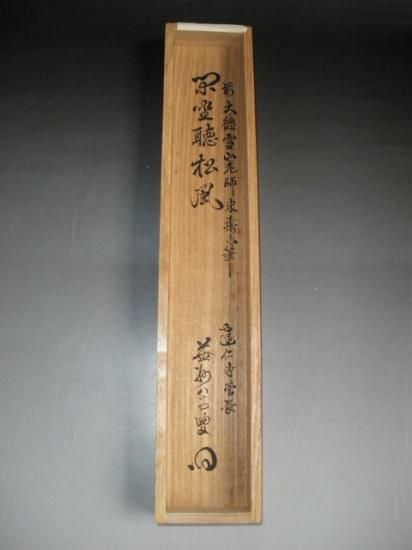 前大德雪老師米壽之筆
閑坐聽松風
建仁寺管長
益州八十四叟